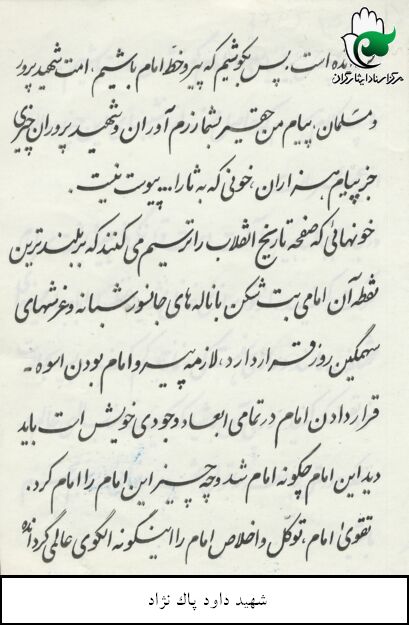 مرکز اسناد ایثارگران
ده است. پس بکوشیم که پیرو خط امام باشیم، امت شهید پرور
و مسلمان، پیام من حقیر بشما رزم آوران و شهید پروران چیزی
جز پیام هزاران، خونی که به ثارا... پیوست نیست.
خونهائی که صفحه تاریخ انقلاب را ترسیم می کنند که بر بلندترین
نقطه آن امامی بت شکن با ناله های جانسوز شبانه و غرشهای
سهمگین روز قرار دارد، لازمه پیرو امام بودن اسوه -
قرار دادن امام در تمامی ابعاد وجودی خویش است باید
دید این امام چگونه امام شد و چه چیز این امام را امام کرد.
تقویٰ امام، توکّل و اخلاص امام را اینگونه الگوی عالمی گردانده
شهید داود پاک نژاد